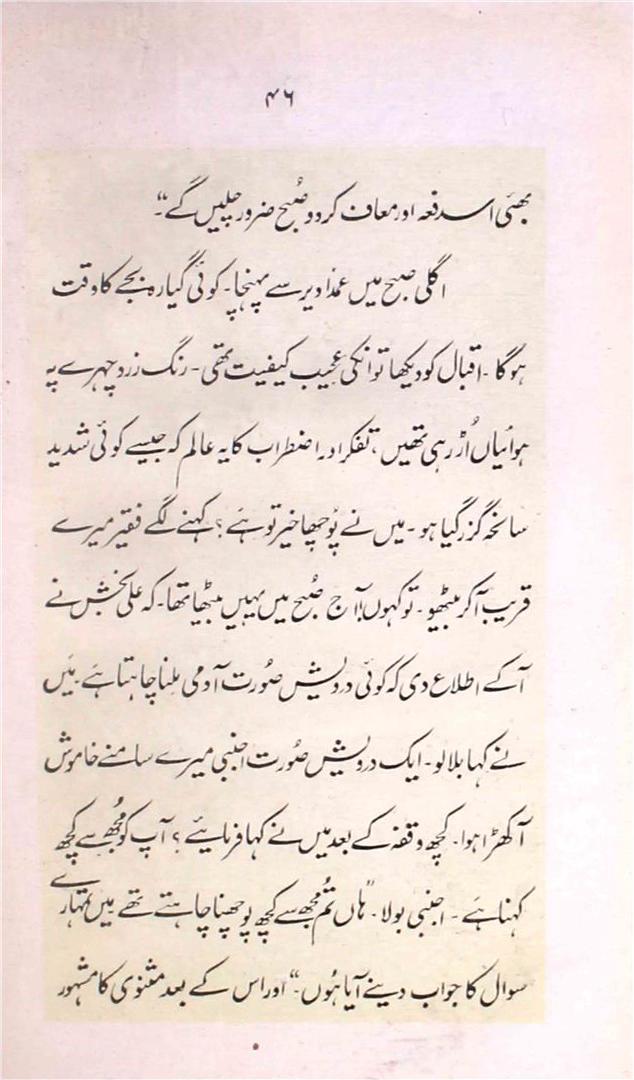 ۴۶
بھئی اسدفعہ اور معاف کردو صُبح ضرور چلیں گے“۔
اگلی صبح میں عمداً دیر سے پہنچا۔ کوئی گیارہ بجے کا وقت
ہوگا۔ اقبال کو دیکھا تو انکی عجیب کیفیت تھی۔ رنگ زرد چہرے پہ
ہوائیاں اُڑ رہی تھیں، تفکر اور اضطراب کا یہ عالم کہ جیسے کوئی شدید
سانحہ گزر گیا ہو۔ میں نے پُوچھا خیر تو ہَے؟ کہنے لگے فقیر میرے
قریب آکر بیٹھیو۔ تو کہوں! آج صُبح میں یہیں بیٹھا تھا۔ کہ علی بخش نے
آکے اطلاع دی کہ کوئی درویش صُورت آدمی مِلنا چاہتا ہَے۔ مَیں
نے کہا بلا لو۔ ایک درویش صُورت اجنبی میرے سامنے خاموش
آکھڑا ہوا۔ کچھ وقفہ کے بعد میں نے کہا فرمایئے؟ آپ کو مُجھ سے کچھ
کہنا ہَے۔ اجنبی بولا۔ ”ہاں تُم مُجھ سے کچھ پوچھنا چاہتے تھے میں تمہارے
سوال کا جواب دینے آیا ہُوں۔“ اور اس کے بعد مثنوی کا مشہور